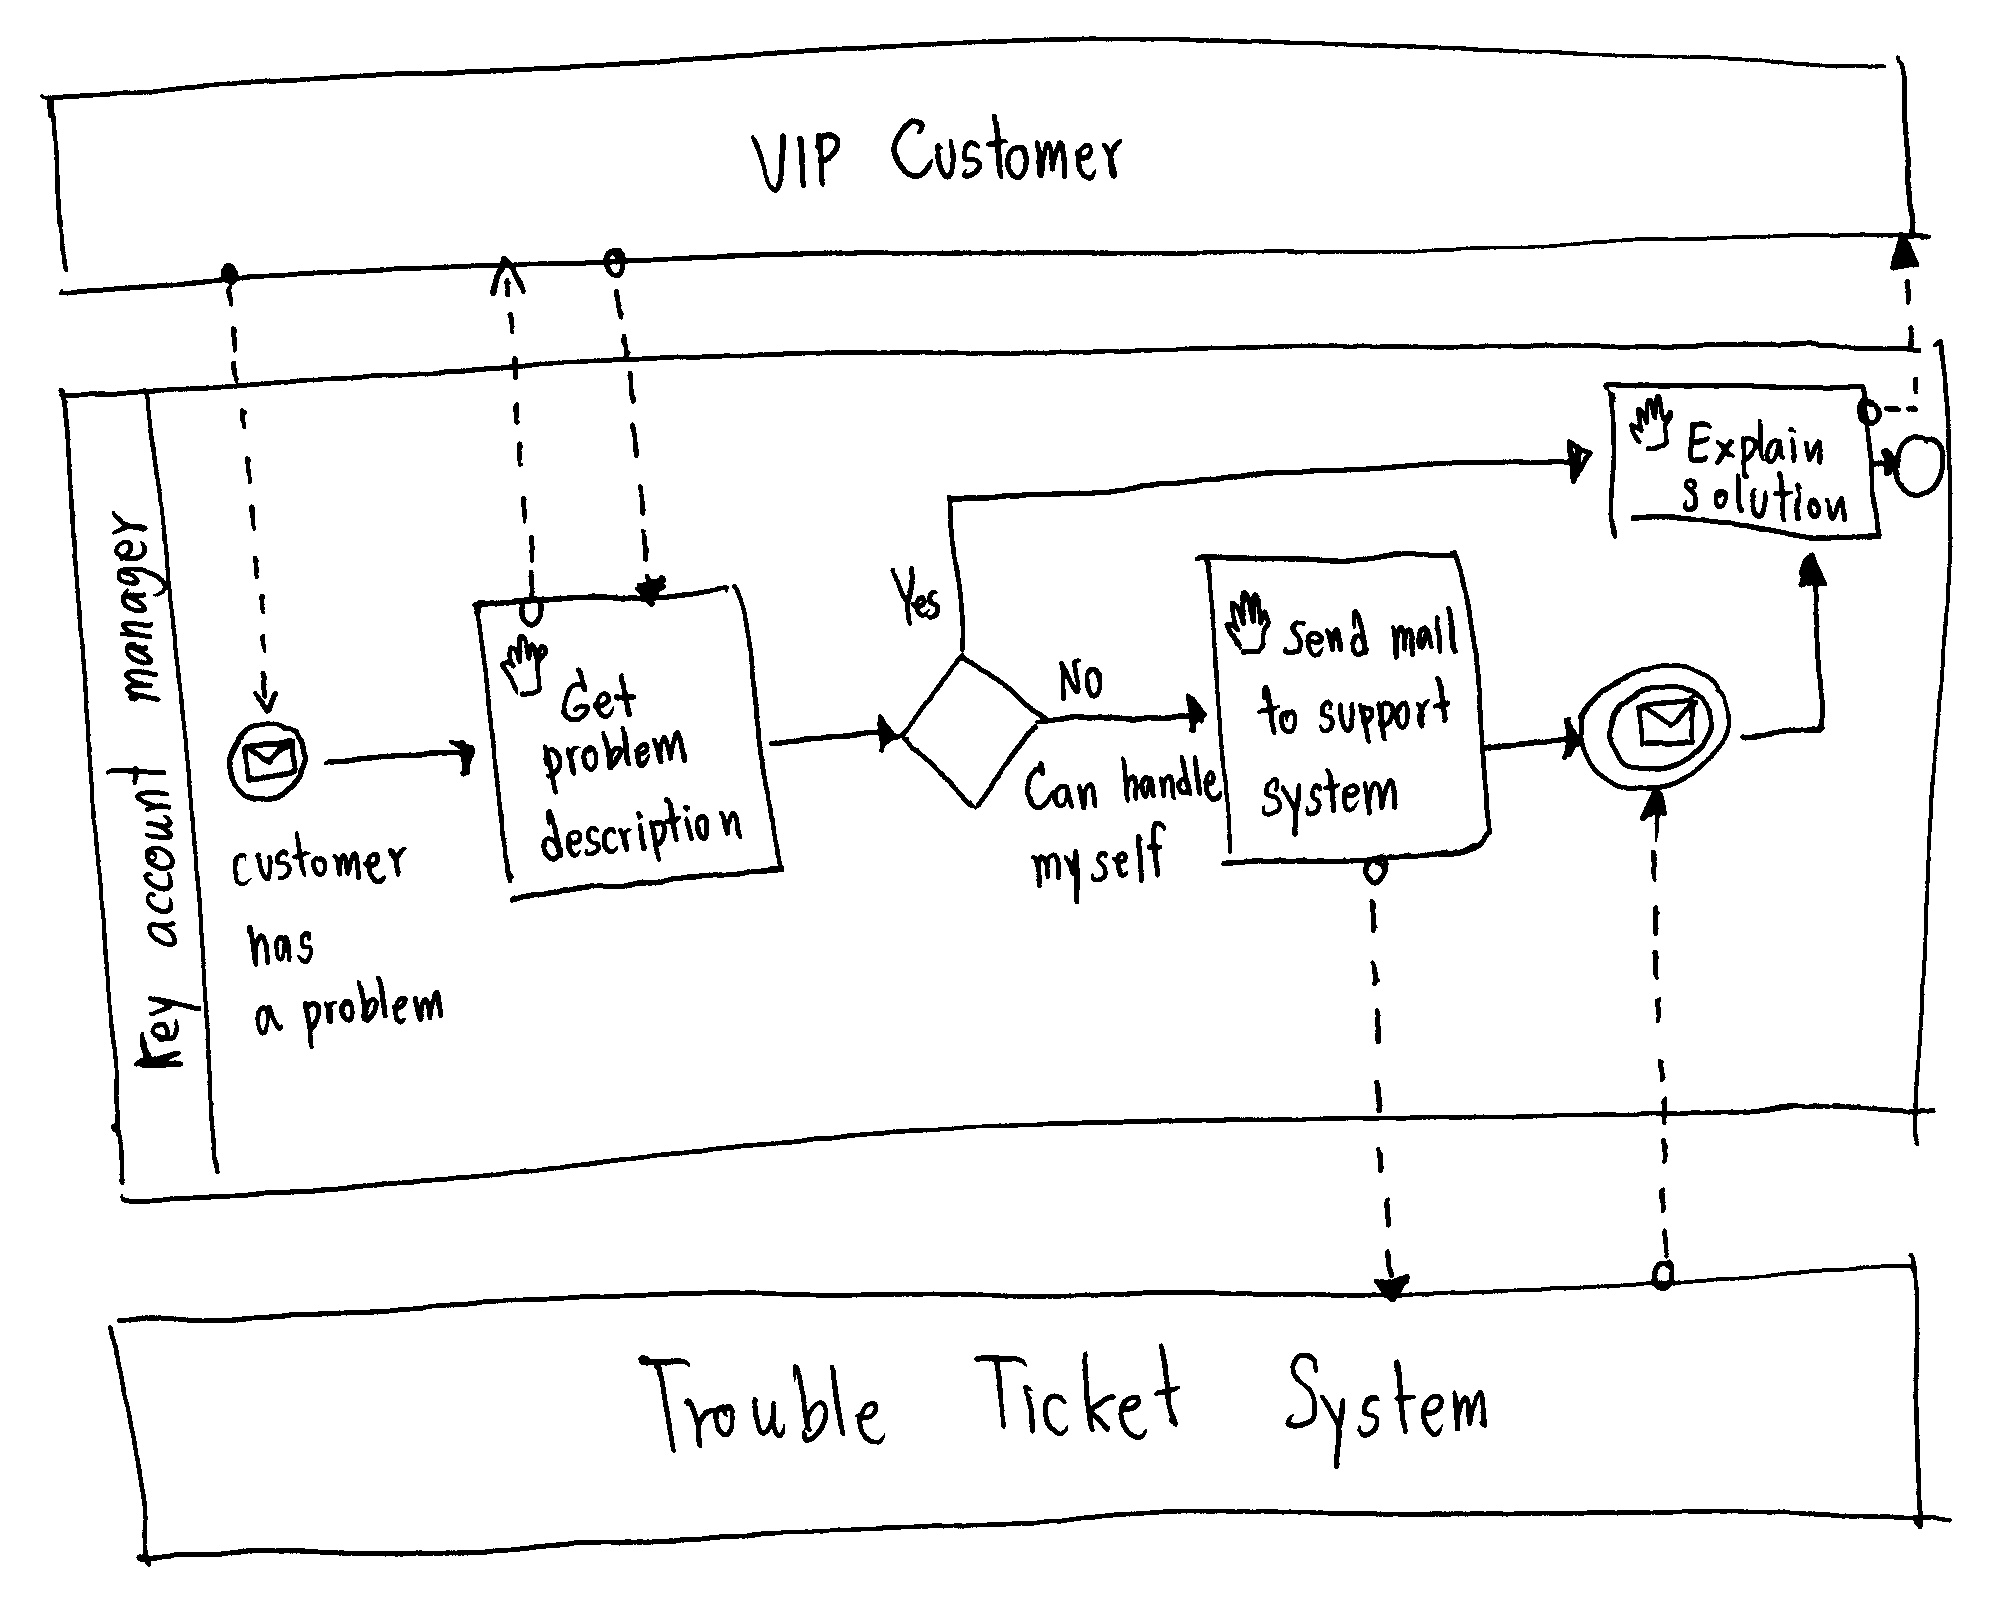 VIP Customer
Key account manager
customer
has
a problem
Get
problem
description
Yes
NO
Can handle
myself
Send mail
to support
system
Explain
solution
Trouble Ticket System